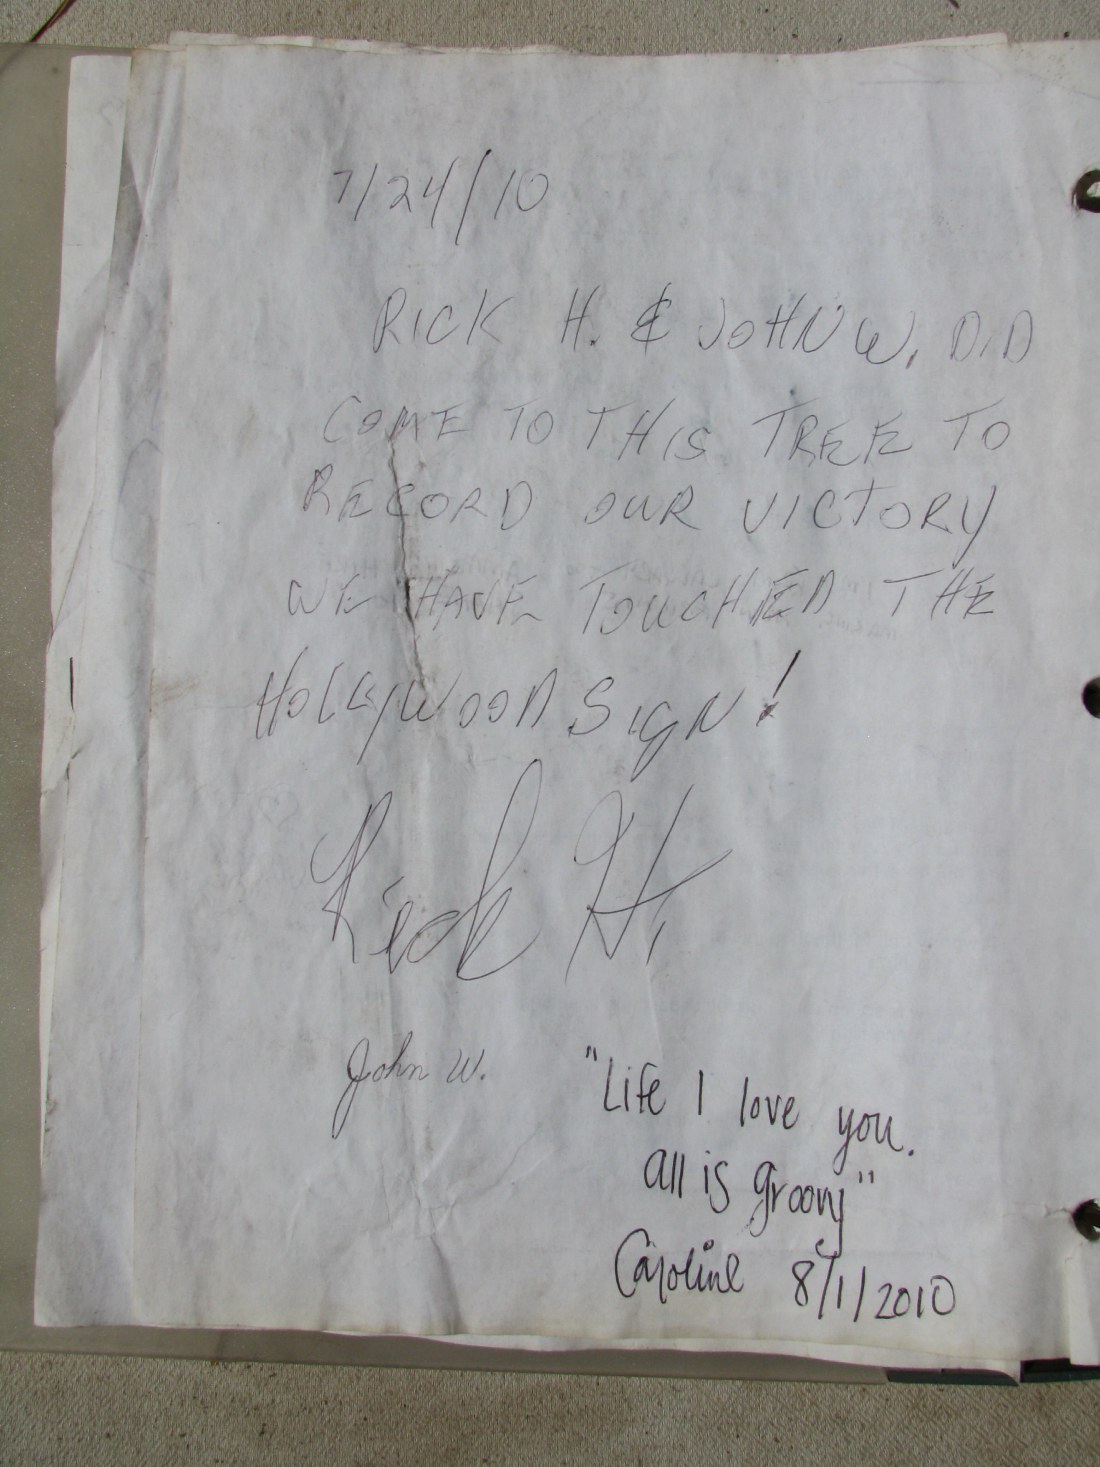 7/24/10
RICK H. & JOHN W. DID
COME TO THIS TREE TO
RECORD OUR VICTORY
WE HAVE TOUCHED THE
HOLLYWOOD SIGN!
Rick H.
John W.
"Life I love you.
all is groovy"
Caroline 8/1/2010